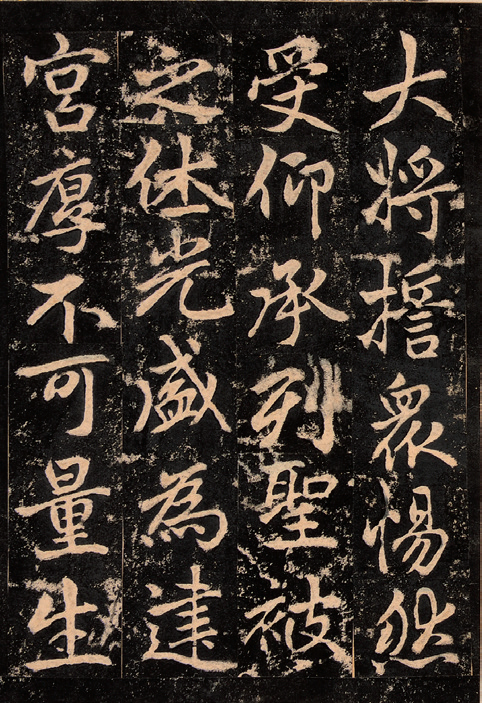 大将誓衆惕然
受仰承列聖被
之休光盛為建
宮厚不可量生